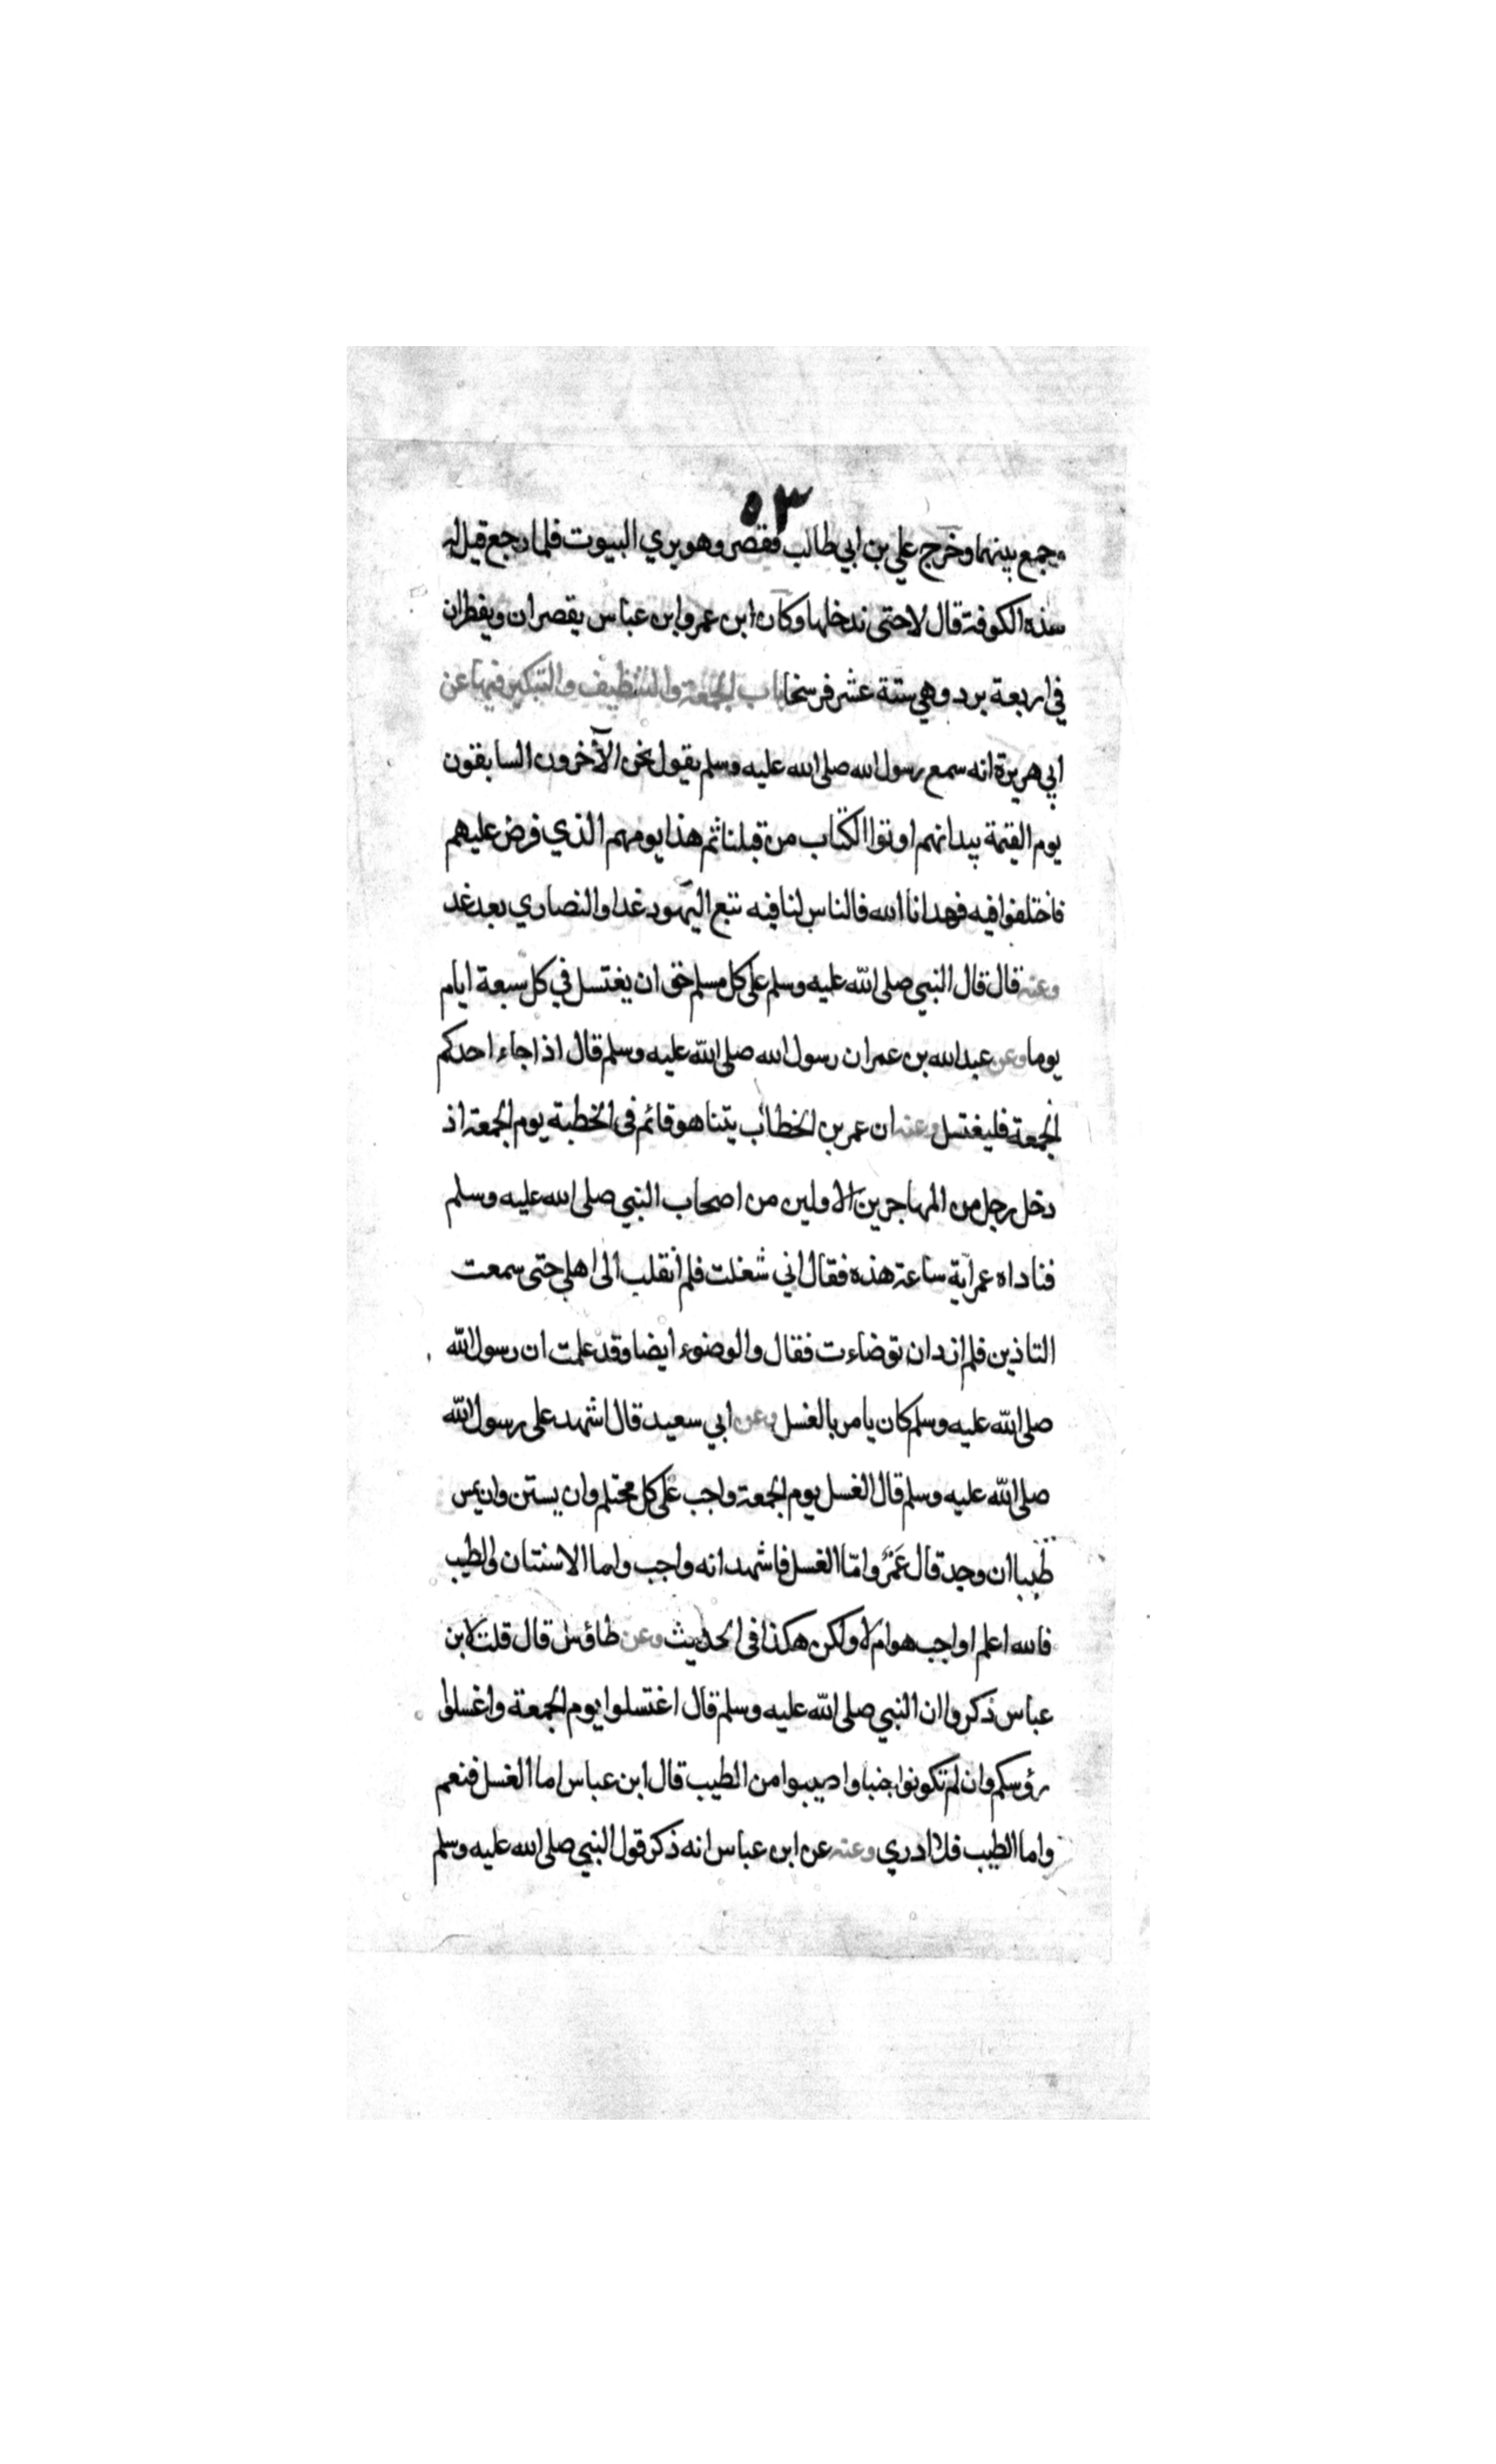 ٥٣
جمع بينهما وخرج علي بن ابي طالب فقصر وهو يري البيوت فلما رجع قيل له
هذه الكوفة قال لا حتى ندخلها وكان ابن عمر وابن عباس يقصران ويفطران
في اربعة برد وهي ستة عشر فرسخا باب الجمعة والتنظيف والتبكير فيها عن
ابي هريرة انه سمع رسول الله صلى الله عليه وسلم يقول نحن الآخرون السابقون
يوم القيمة بيدانهم اوتوا الكتاب من قبلنا ثم هذا يومهم الذي فرض عليهم
فاختلفوا فيه فهدانا الله فالناس لنا فيه تبع اليهود غدا والنصاري بعد غد
وعنه قال قال النبي صلى الله عليه وسلم على كل مسلم حق ان يغتسل في كل سبعة ايام
يوما وعن عبدالله بن عمر ان رسول الله صلى الله عليه وسلم قال اذا جاء احدكم
الجمعة فليغتسل وعنه ان عمر بن الخطاب بينا هو قائم فى الخطبة يوم الجمعة اذ
دخل رجل من المهاجرين الاولين من اصحاب النبي صلى الله عليه وسلم
فناداه عمر اية ساعة هذه فقال اني شغلت فلم انقلب الى اهلي حتى سمعت
التاذين فلم ازد ان توضاءت فقال والوضوء ايضا وقد علمت ان رسول الله
صلى الله عليه وسلم كان يامر بالغسل وعن ابي سعيد قال اشهد على رسول الله
صلى الله عليه وسلم قال الغسل يوم الجمعة واجب على كل محتلم وان يستن وان يمس
طيبا ان وجد قال عمرو اما الغسل فاشهد انه واجب واما الاستنان والطيب
فالله اعلم اواجب هو ام لا ولكن هكذا فى الحديث وعن طاؤس قال قلت لابن
عباس ذكروا ان النبي صلى الله عليه وسلم قال اغتسلوا يوم الجمعة واغسلوا
رؤسكم وان لم تكونوا جنبا واصيبوا من الطيب قال ابن عباس اما الغسل فنعم
واما الطيب فلا ادري وعنه عن ابن عباس انه ذكر قول النبي صلى الله عليه وسلم